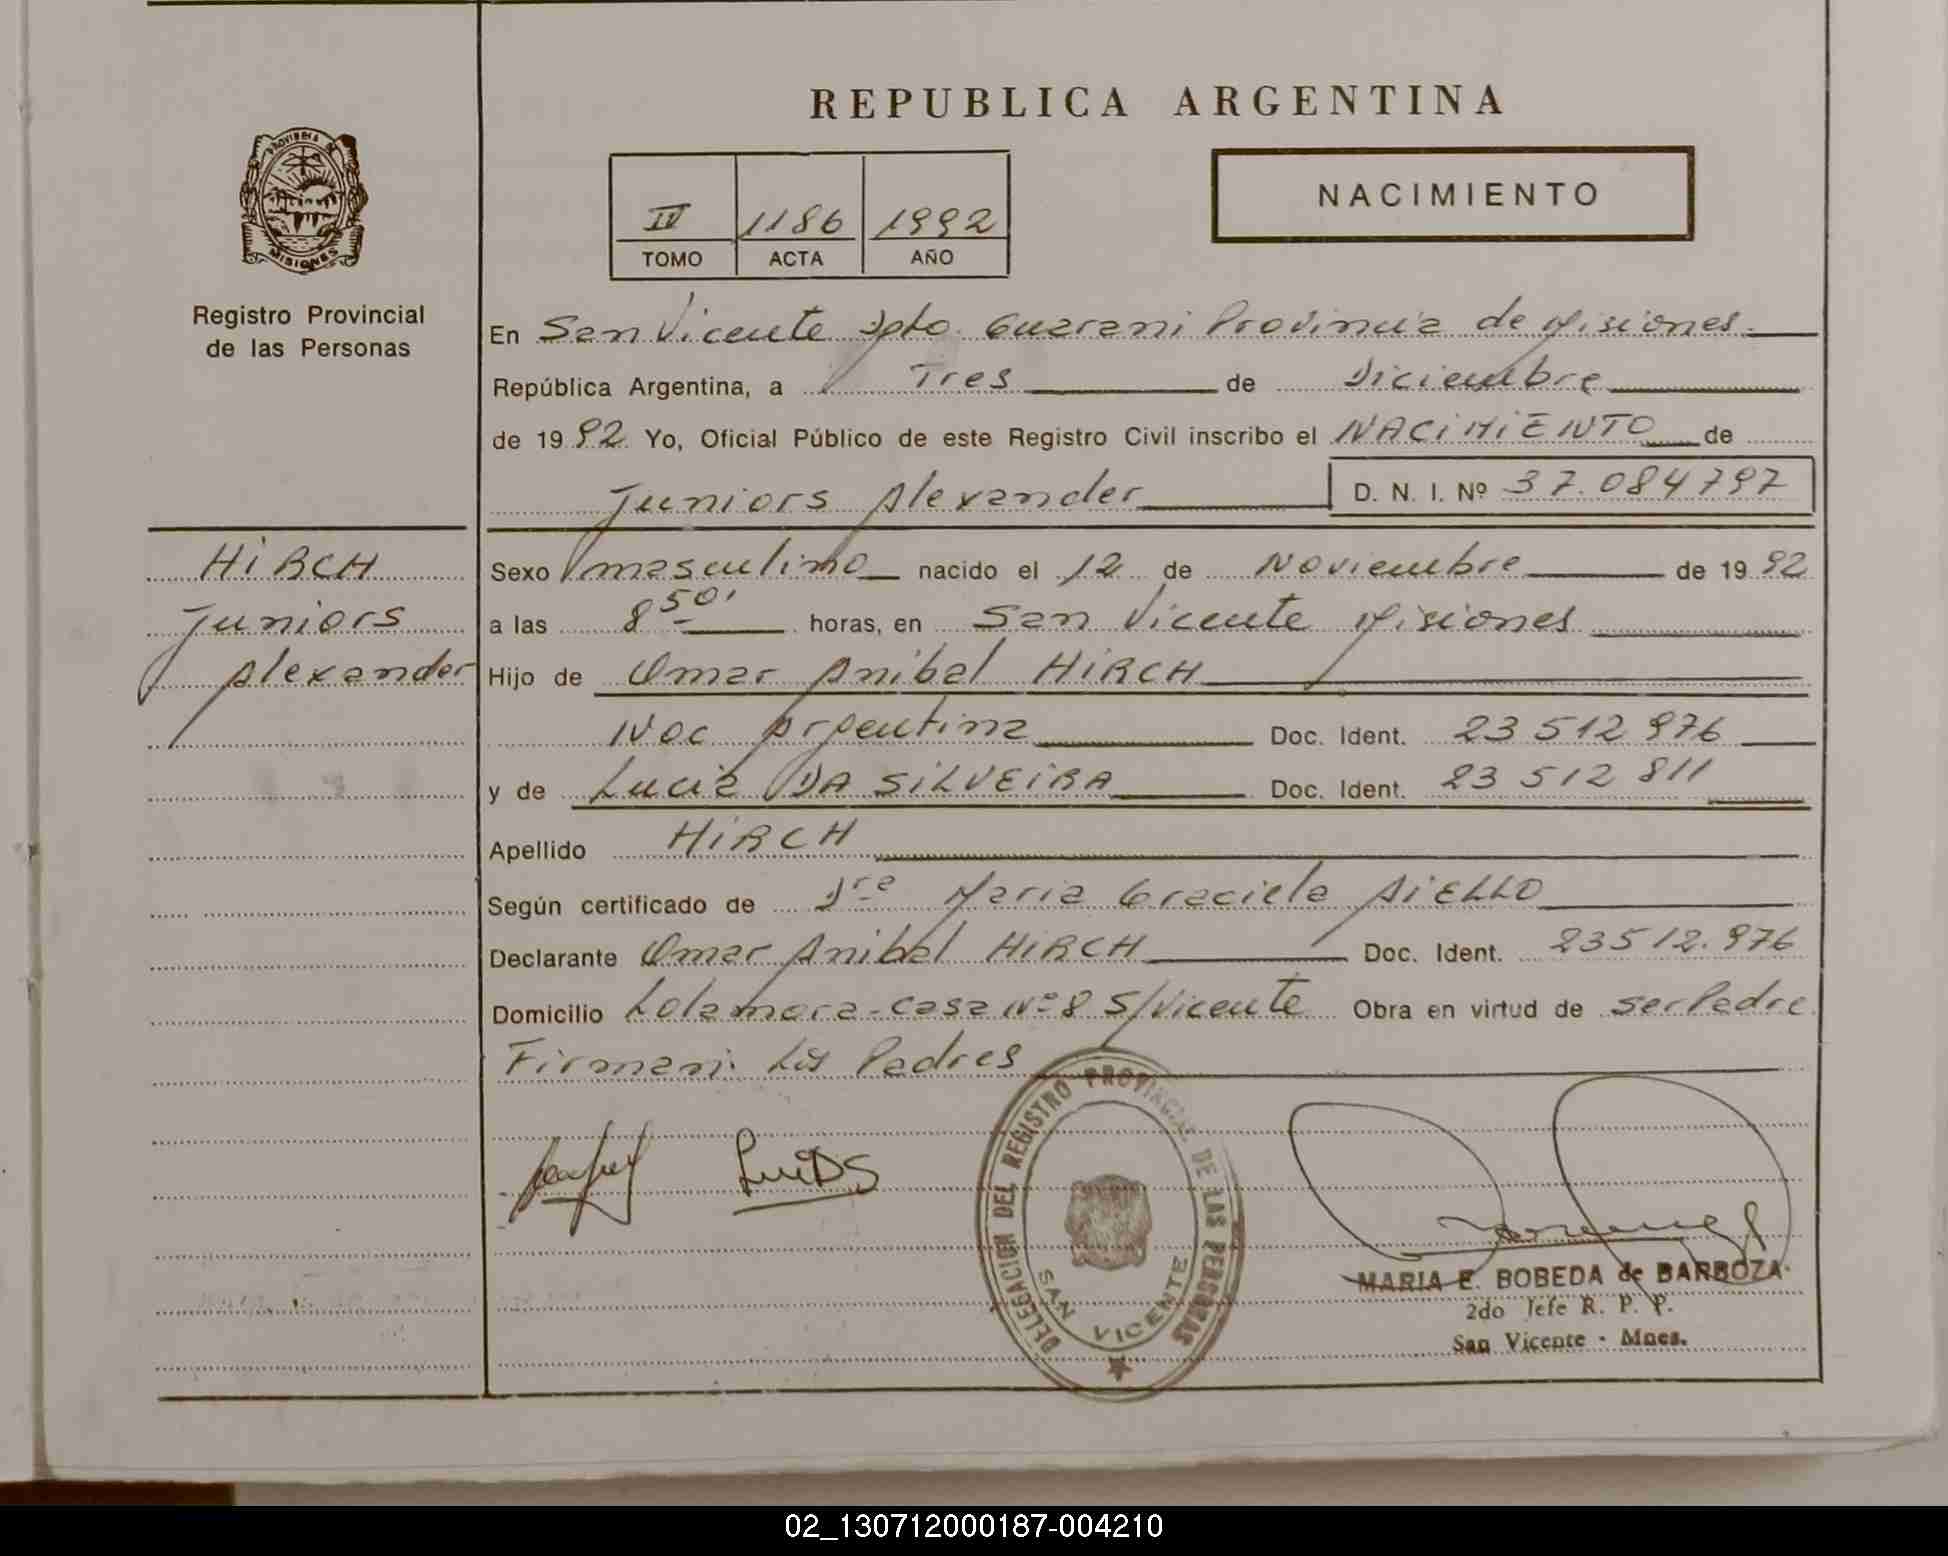 REPUBLICA ARGENTINA
NACIMIENTO
IV 1186 1992
TOMO ACTA AÑO
PROVINCIA DE
MISIONES
Registro Provincial
de las Personas
En San Vicente Dpto. Guarani Provincia de Misiones
República Argentina, a Tres de Diciembre
de 1992 Yo, Oficial Público de este Registro Civil inscribo el NACIMIENTO de
Juniors Alexander D. N. I. Nº 37.084797
HIRCH
Juniors
Alexander
Sexo masculino nacido el 12 de Noviembre de 1992
a las 8 50' horas, en San Vicente Misiones
Hijo de Omar Anibal HIRCH
Nac. Argentina Doc. Ident. 23 512 976
y de Lucia DA SILVEIRA Doc. Ident. 23 512 811
Apellido HIRCH
Según certificado de Dra Maria Graciela AIELLO
Declarante Omar Anibal HIRCH Doc. Ident. 23512.976
Domicilio Lolamora-casa Nº 8 S/Vicente Obra en virtud de ser Padre
Firman: Los Padres
LuiDS
DELEGACION DEL REGISTRO PROVINCIAL DE LAS PERSONAS
SAN VICENTE
MARIA E. BOBEDA de BARBOZA
2do Jefe R. P. P.
San Vicente - Mnes.
02_130712000187-004210